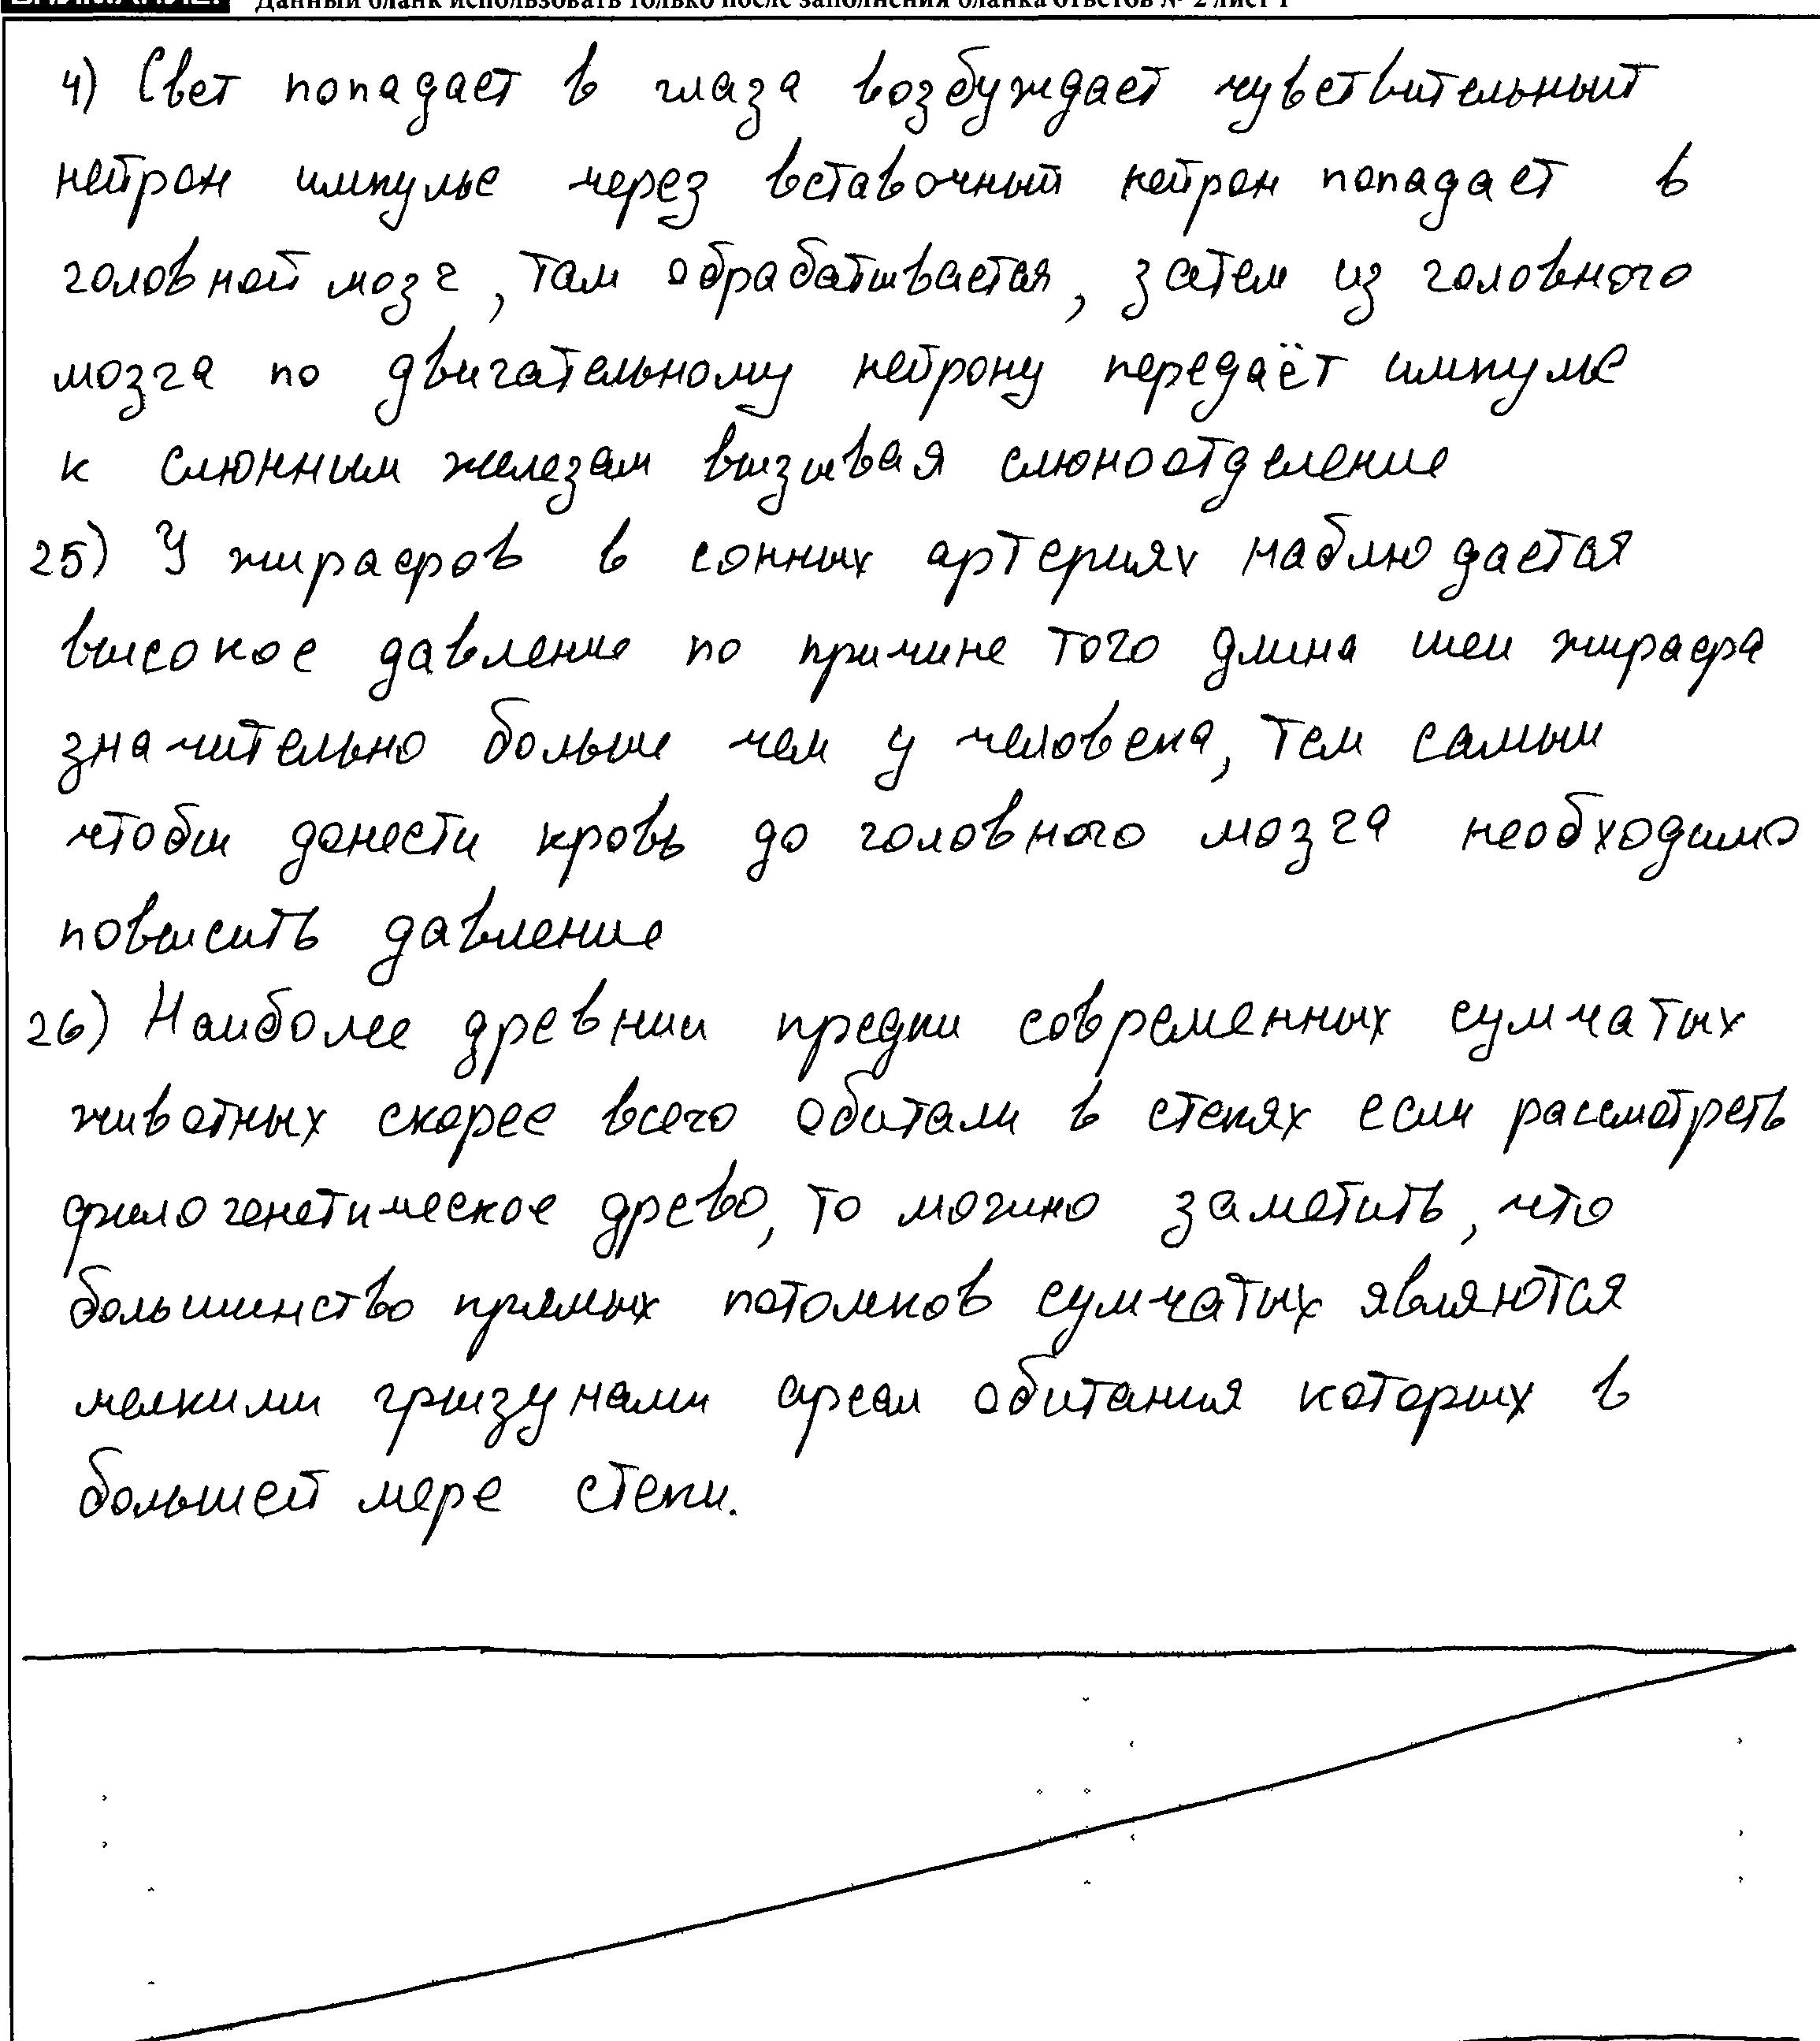 Данный бланк использовать только после заполнения бланка ответов № 2 лист 1
4) Свет попадает в глаза возбуждает чувствительный
нейрон импульс через вставочный нейрон попадает в
головной мозг, там обрабатывается, затем из головного
мозга по двигательному нейрону передаёт импульс
к слюнным железам вызывая слюноотделение
25) У жирафов в сонных артериях наблюдается
высокое давление по причине того длина шеи жирафа
значительно больше чем у человека, тем самым
чтобы донести кровь до головного мозга необходимо
повысить давление
26) Наиболее древнии предки современных сумчатых
животных скорее всего обитали в степях если рассмотреть
филогенетическое древо, то можно заметить, что
большинство прямых потомков сумчатых являются
мелкими грызунами ареал обитания которых в
большей мере степи.